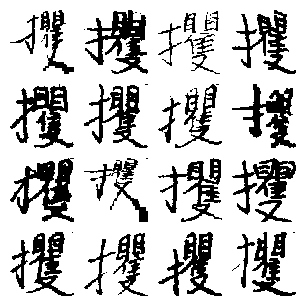 攫攫攫攫
攫攫攫攫
攫攫攫攫
攫攫攫攫